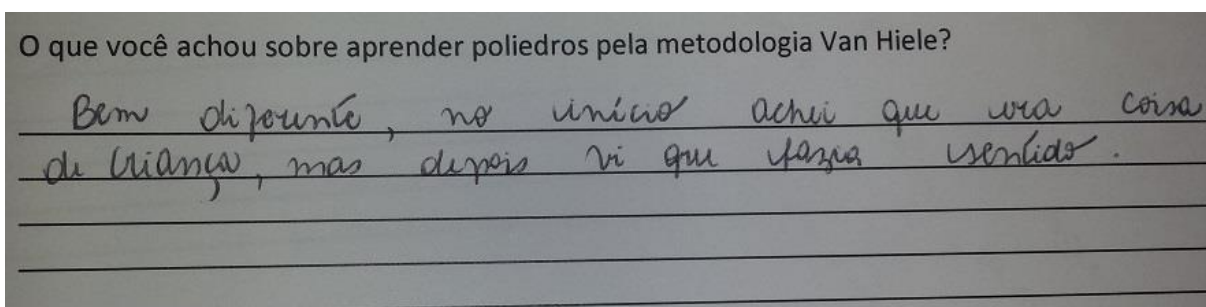 O que você achou sobre aprender poliedros pela metodologia Van Hiele?
Bem diferente, no início achei que era coisa
de criança, mas depois vi que fazia sentido.